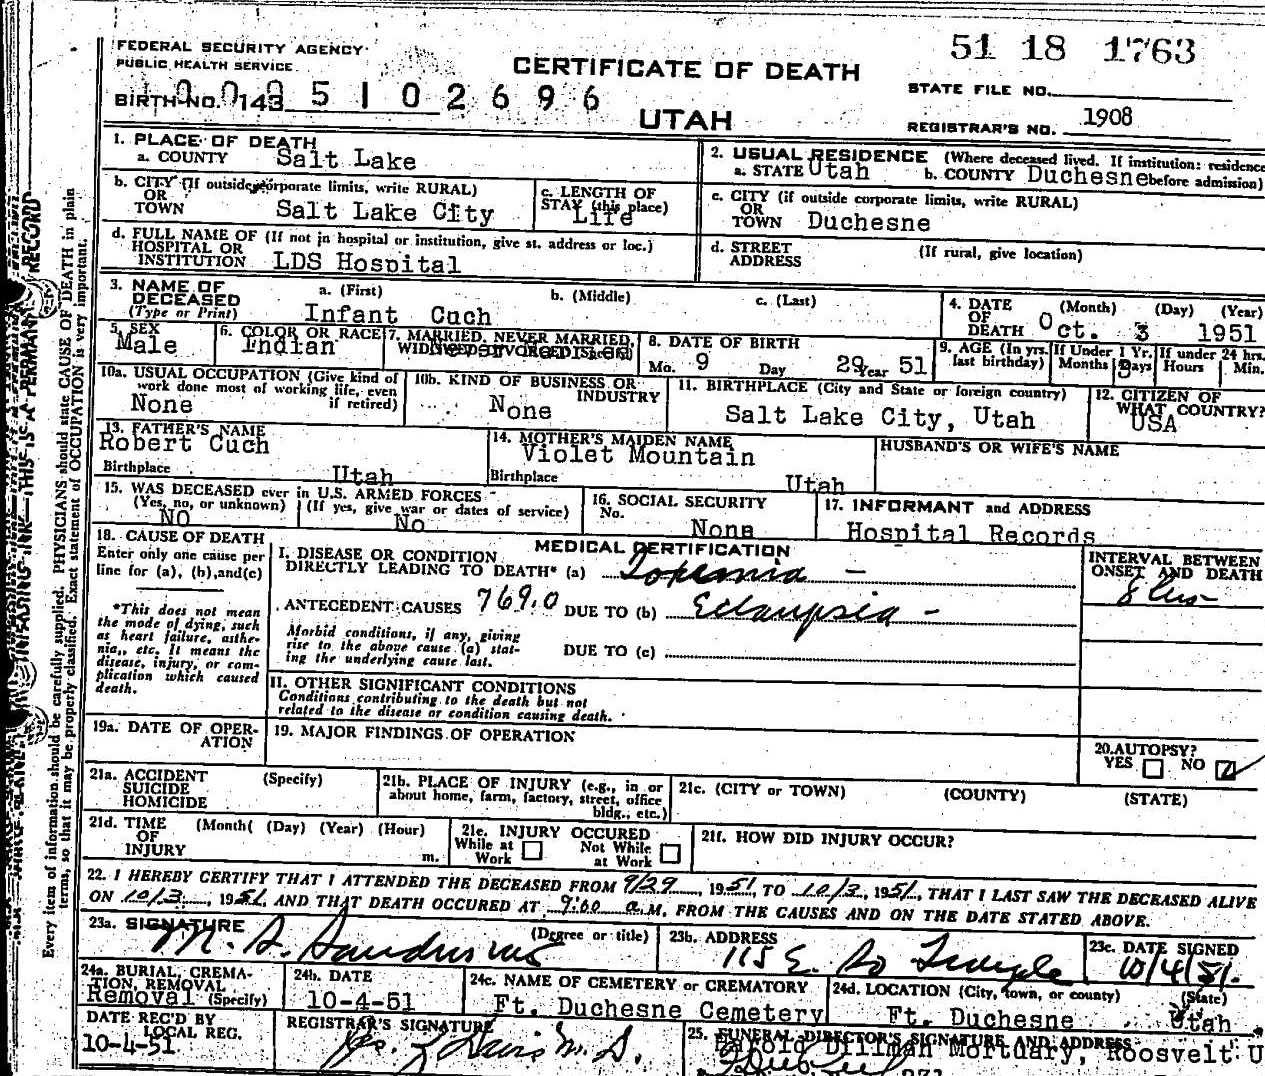 FEDERAL SECURITY AGENCY
PUBLIC HEALTH SERVICE
CERTIFICATE OF DEATH
UTAH
51 18 1763
STATE FILE NO.
BIRTH NO. 143
5102696
REGISTRAR'S NO. 1908
1. PLACE OF DEATH
a. COUNTY Salt Lake
2. USUAL RESIDENCE (Where deceased lived. If institution: residence
a. STATE Utah b. COUNTY Duchesne before admission)
b. CITY (If outside corporate limits, write RURAL)
OR
TOWN Salt Lake City
c. LENGTH OF
STAY (this place)
Life
c. CITY (if outside corporate limits, write RURAL)
OR
TOWN Duchesne
d. FULL NAME OF (If not in hospital or institution, give st. address or loc.)
HOSPITAL OR
INSTITUTION LDS Hospital
d. STREET (If rural, give location)
ADDRESS
3. NAME OF
DECEASED
(Type or Print)
a. (First) b. (Middle) c. (Last)
Infant Cuch
4. DATE (Month) (Day) (Year)
OF
DEATH Oct. 3 1951
5. SEX
Male
6. COLOR OR RACE
Indian
7. MARRIED, NEVER MARRIED,
WIDOWED, DIVORCED
Never Married
8. DATE OF BIRTH
Mo. 9 Day 29 Year 51
9. AGE (In yrs. last birthday)
If Under 1 Yr.
Months Days
If under 24 hrs.
Hours Min.
10a. USUAL OCCUPATION (Give kind of
work done most of working life, even
if retired)
None
10b. KIND OF BUSINESS OR
INDUSTRY
None
11. BIRTHPLACE (City and State or foreign country)
Salt Lake City, Utah
12. CITIZEN OF
WHAT COUNTRY?
USA
13. FATHER'S NAME
Robert Cuch
Birthplace Utah
14. MOTHER'S MAIDEN NAME
Violet Mountain
Birthplace Utah
HUSBAND'S OR WIFE'S NAME
15. WAS DECEASED ever in U.S. ARMED FORCES
(Yes, no, or unknown) (If yes, give war or dates of service)
NO No
16. SOCIAL SECURITY
No. None
17. INFORMANT and ADDRESS
Hospital Records
18. CAUSE OF DEATH
Enter only one cause per
line for (a), (b), and (c)
*This does not mean
the mode of dying, such
as heart failure, asthe-
nia, etc. It means the
disease, injury, or com-
plication which caused
death.
MEDICAL CERTIFICATION
I. DISEASE OR CONDITION
DIRECTLY LEADING TO DEATH* (a) Toxemia
ANTECEDENT CAUSES 769.0 DUE TO (b) Eclampsia
Morbid conditions, if any, giving
rise to the above cause (a) stat-
ing the underlying cause last.
DUE TO (c)
II. OTHER SIGNIFICANT CONDITIONS
Conditions contributing to the death but not
related to the disease or condition causing death.
INTERVAL BETWEEN
ONSET AND DEATH
19a. DATE OF OPER-
ATION
19. MAJOR FINDINGS OF OPERATION
20. AUTOPSY?
YES NO
21a. ACCIDENT (Specify)
SUICIDE
HOMICIDE
21b. PLACE OF INJURY (e.g., in or
about home, farm, factory, street, office
bldg., etc.)
21c. (CITY or TOWN) (COUNTY) (STATE)
21d. TIME (Month( (Day) (Year) (Hour)
OF
INJURY m.
21e. INJURY OCCURED
While at Work Not While at Work
21f. HOW DID INJURY OCCUR?
22. I HEREBY CERTIFY THAT I ATTENDED THE DECEASED FROM 9/29, 1951, TO 10/3, 1951, THAT I LAST SAW THE DECEASED ALIVE
ON 10/3, 1951, AND THAT DEATH OCCURED AT 9:00 a.M, FROM THE CAUSES AND ON THE DATE STATED ABOVE.
23a. SIGNATURE (Degree or title)
23b. ADDRESS
115 E. So Temple
23c. DATE SIGNED
10/4/51.
24a. BURIAL, CREMA-
TION, REMOVAL
Removal (Specify)
24b. DATE
10-4-51
24c. NAME OF CEMETERY or CREMATORY
Ft. Duchesne Cemetery
24d. LOCATION (City, town, or county) (State)
Ft. Duchesne Utah
DATE REC'D BY
LOCAL REG.
10-4-51
REGISTRAR'S SIGNATURE
25. FUNERAL DIRECTOR'S SIGNATURE AND ADDRESS
Dillman Mortuary, Roosvelt U
Every item of information should be carefully supplied. PHYSICIANS should state CAUSE OF DEATH in plain
terms, so that it may be properly classified. Exact statement of OCCUPATION is very important.
UNFADING INK—THIS IS A PERMANENT RECORD